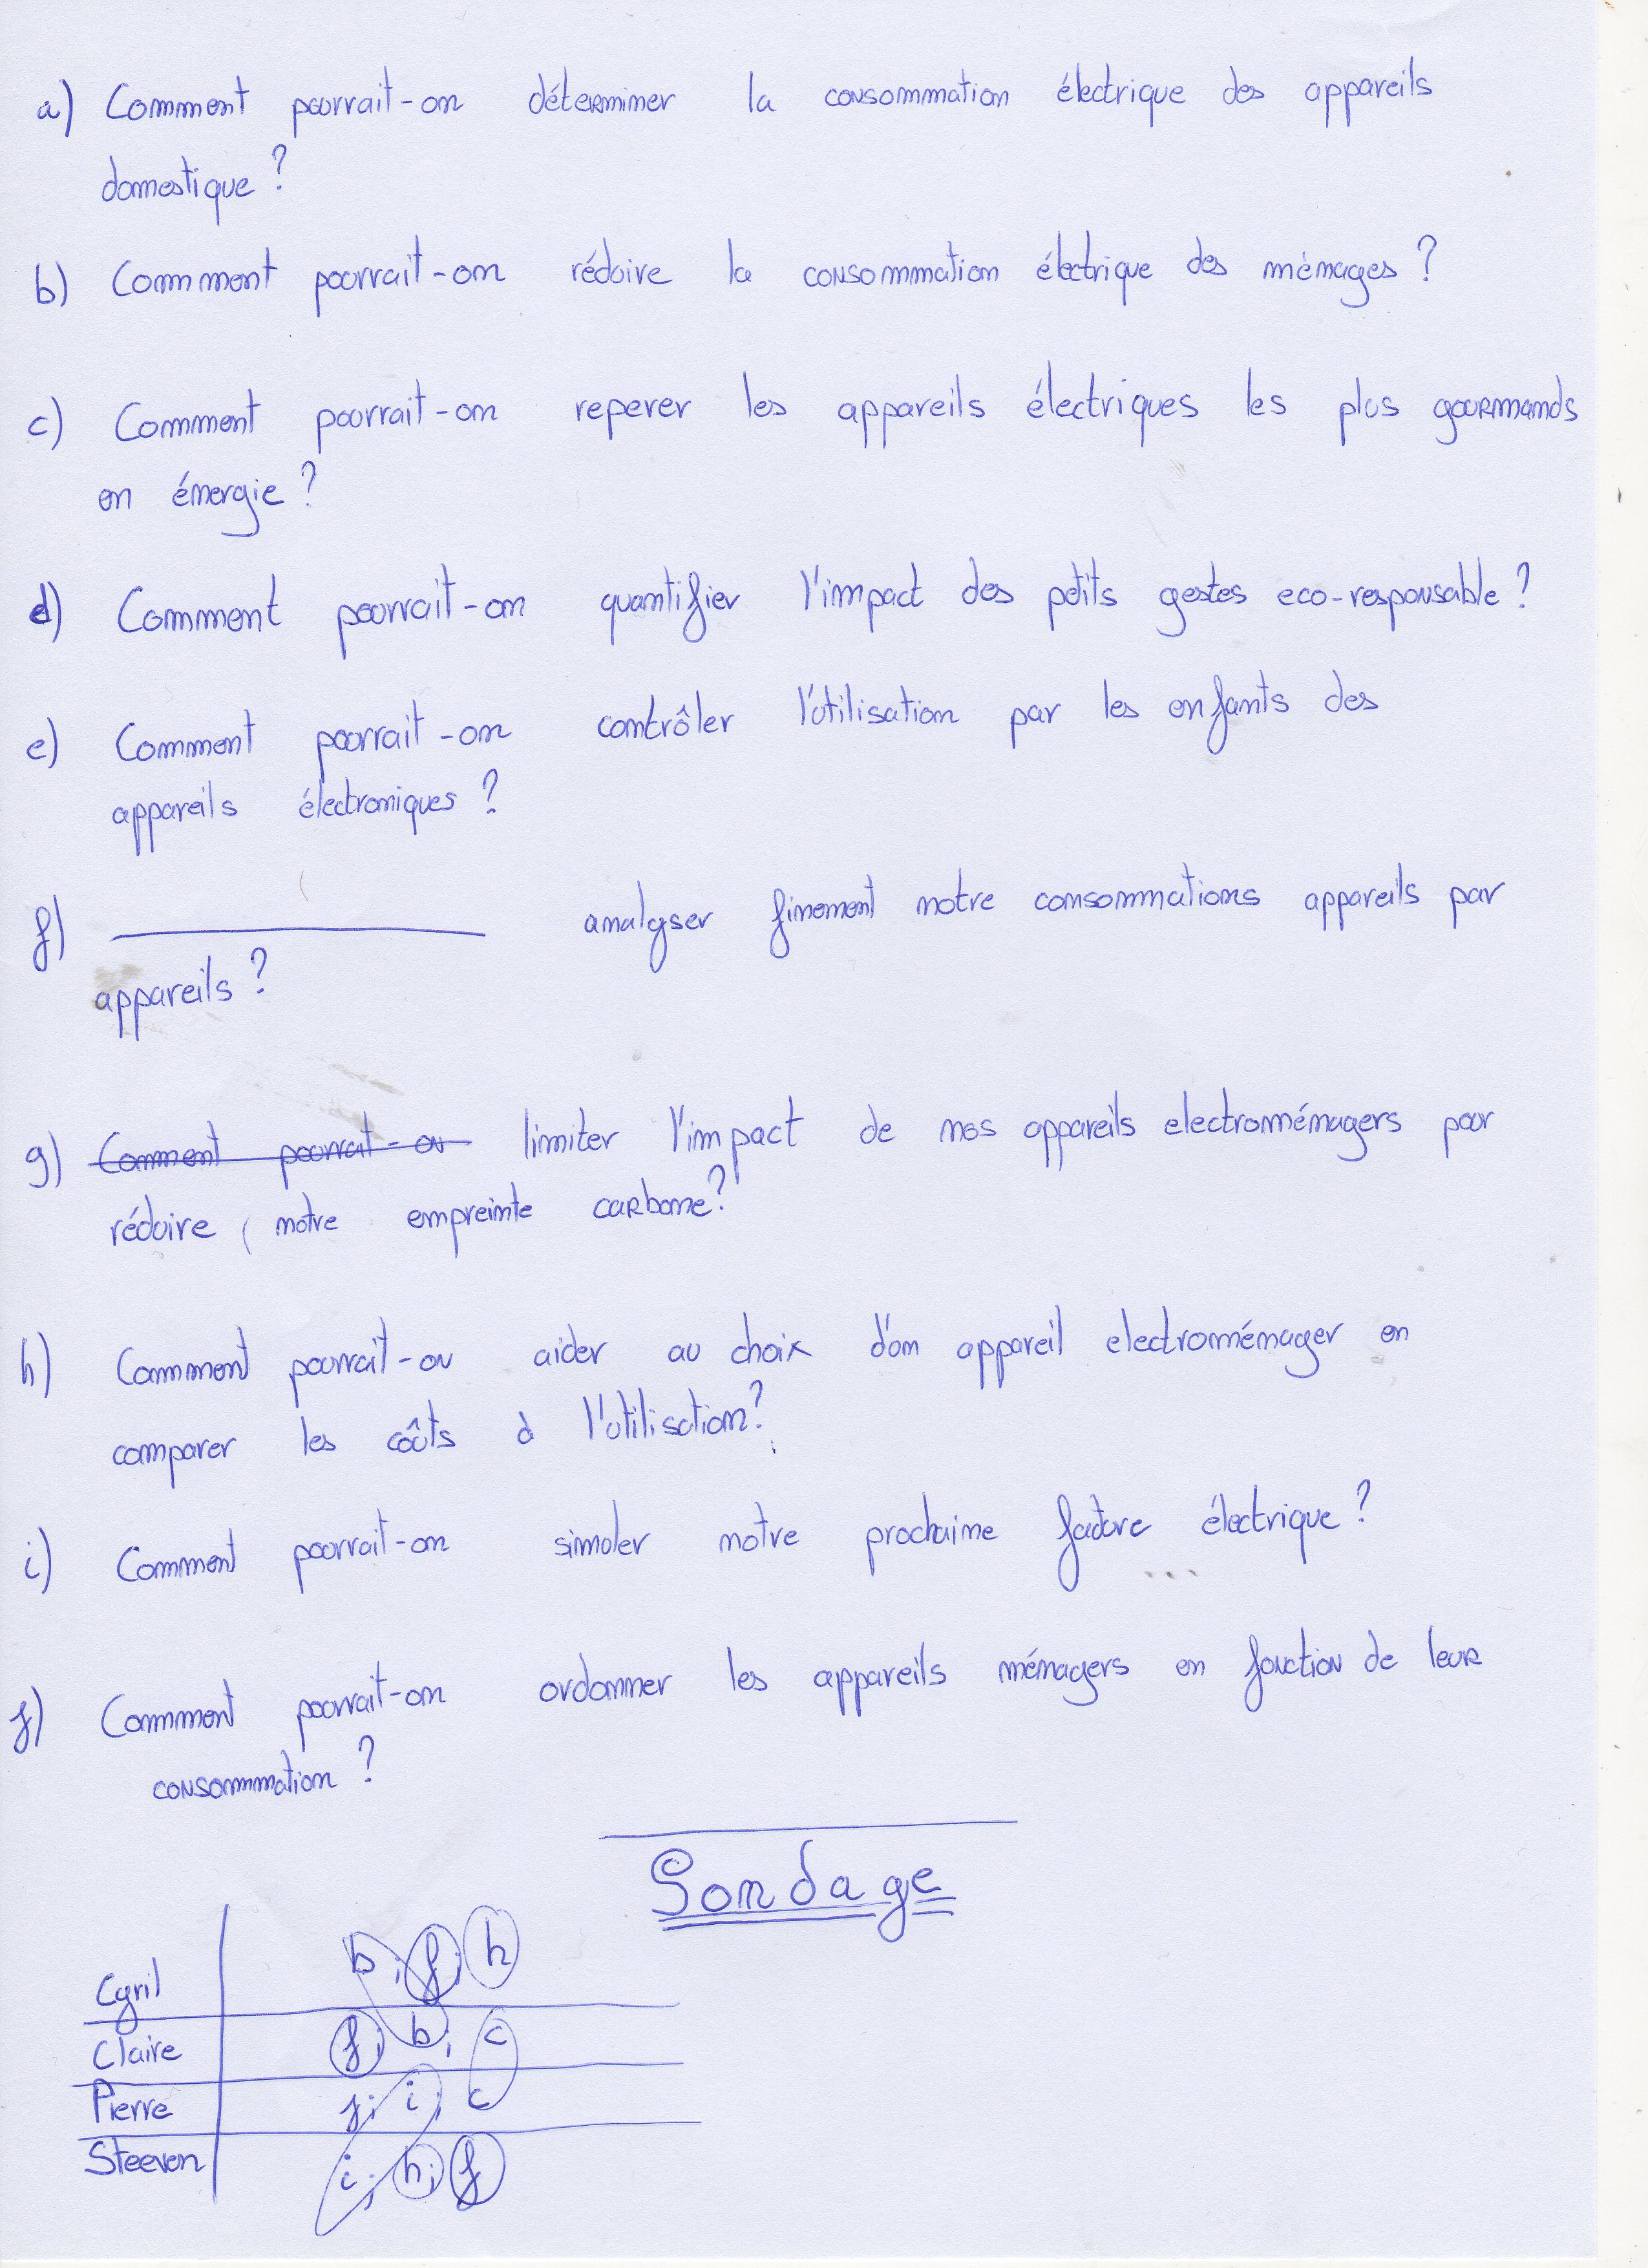 a) Comment pourrait-on déterminer la consommation électrique des appareils
domestique ?
b) Comment pourrait-on réduire la consommation électrique des ménages ?
c) Comment pourrait-on reperer les appareils électriques les plus gourmands
en énergie ?
d) Comment pourrait-on quantifier l'impact des petits gestes eco-responsable ?
e) Comment pourrait-on contrôler l'utilisation par les enfants des
appareils électroniques ?
f) analyser finement notre consommations appareils par
appareils ?
g) Comment pourrait-on limiter l'impact de nos appareils electroménagers pour
réduire notre empreinte carbone ?
h) Comment pourrait-on aider au choix d'un appareil electroménager en
comparer les coûts à l'utilisation ?
i) Comment pourrait-on simuler notre prochaine facture électrique ?
j) Comment pourrait-on ordonner les appareils ménagers en fonction de leur
consommation ?
Sondage
Cyril b ; f ; h
Claire f ; b ; c
Pierre j ; i ; c
Steeven i ; h ; f